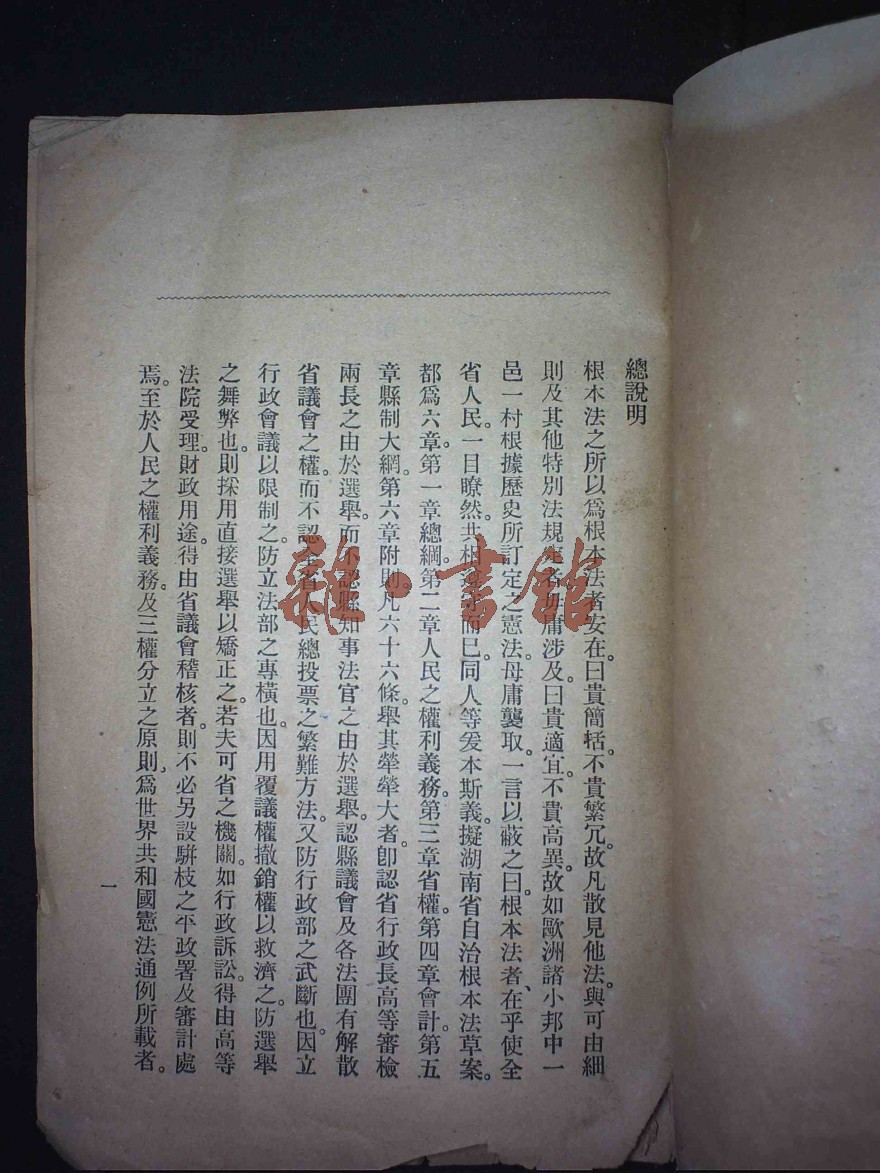 總說明
根本法之所以爲根本法者安在。曰貴簡括。不貴繁冗。故凡散見他法。與可由細
則及其他特別法規定者毋庸涉及。曰貴適宜。不貴高異。故如歐洲諸小邦中一
邑一村根據歷史所訂定之憲法。毋庸襲取。一言以蔽之曰。根本法者、在乎使全
省人民。一目瞭然。共相遵守而已。同人等爰本斯義。擬湖南省自治根本法草案。
都爲六章。第一章總綱。第二章人民之權利義務。第三章省權。第四章會計。第五
章縣制大綱。第六章附則凡六十六條。舉其犖犖大者。卽認省行政長高等審檢
兩長之由於選舉。而不認縣知事法官之由於選舉。認縣議會及各法團有解散
省議會之權。而不認全省人民總投票之繁難方法。又防行政部之武斷也。因立
行政會議以限制之。防立法部之專橫也。因用覆議權撤銷權以救濟之。防選舉
之舞弊也。則採用直接選舉以矯正之。若夫可省之機關。如行政訴訟。得由高等
法院受理。財政用途。得由省議會稽核者。則不必另設駢枝之平政署及審計處
焉。至於人民之權利義務。及三權分立之原則、爲世界共和國憲法通例所載者。
一
雜·書館